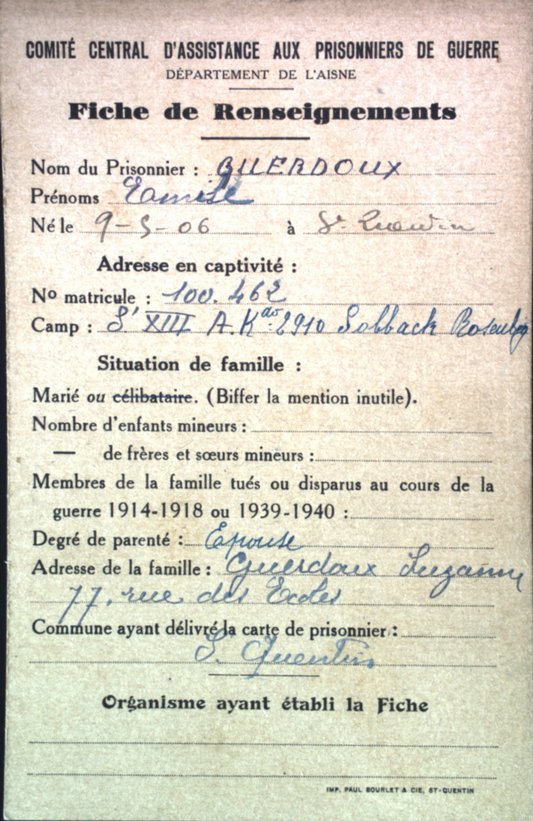 COMITÉ CENTRAL D'ASSISTANCE AUX PRISONNIERS DE GUERRE
DÉPARTEMENT DE L'AISNE
Fiche de Renseignements
Nom du Prisonnier : GUERDOUX
Prénoms
Né le 9-5-06 à St Quentin
Adresse en captivité :
No matricule : 100.462
Camp : St XIII A. Kdo 2910 Sobback Rosenberg
Situation de famille :
Marié ou célibataire. (Biffer la mention inutile).
Nombre d'enfants mineurs :
— de frères et sœurs mineurs :
Membres de la famille tués ou disparus au cours de la
guerre 1914-1918 ou 1939-1940 :
Degré de parenté : Epouse
Adresse de la famille : Guerdoux Suzanne
77, rue des Ecoles
Commune ayant délivré la carte de prisonnier :
S. Quentin
Organisme ayant établi la Fiche
IMP. PAUL BOURLET & CIE, ST-QUENTIN